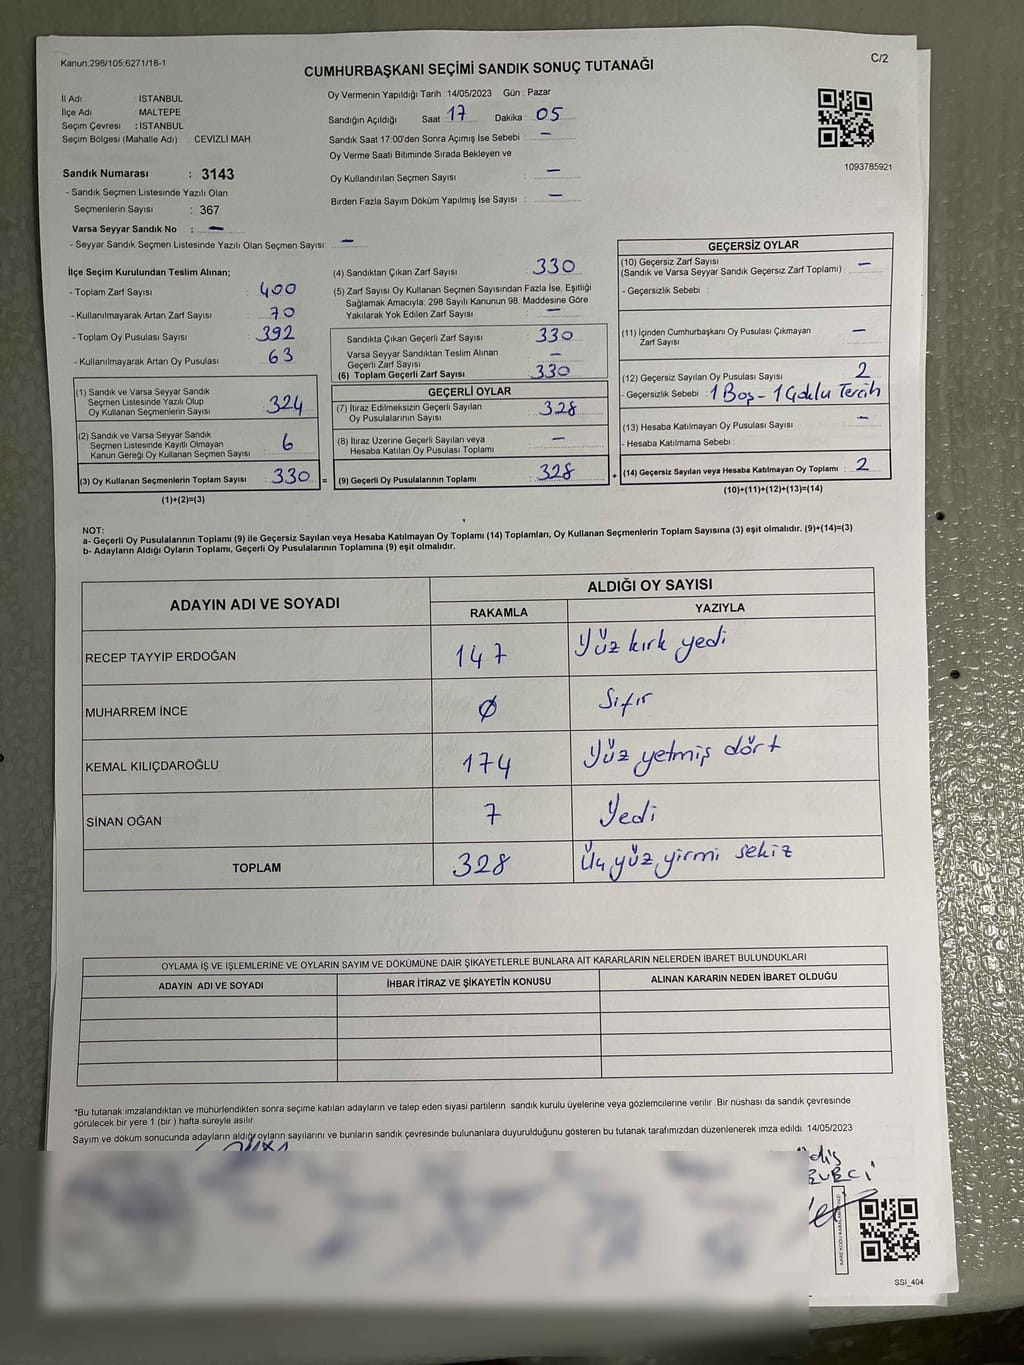 Kanun:298/105;6271/18-1
C/2
CUMHURBAŞKANI SEÇİMİ SANDIK SONUÇ TUTANAĞI
İl Adı : İSTANBUL
İlçe Adı : MALTEPE
Seçim Çevresi : İSTANBUL
Seçim Bölgesi (Mahalle Adı) : CEVİZLİ MAH.
Oy Vermenin Yapıldığı Tarih : 14/05/2023 Gün : Pazar
Sandığın Açıldığı Saat : 17 Dakika : 05
Sandık Saat 17:00'den Sonra Açımış İse Sebebi : —
Oy Verme Saati Bitiminde Sırada Bekleyen ve
Oy Kullandırılan Seçmen Sayısı : —
Birden Fazla Sayım Döküm Yapılmış İse Sayısı : —
1093785921
Sandık Numarası : 3143
- Sandık Seçmen Listesinde Yazılı Olan
Seçmenlerin Sayısı : 367
Varsa Seyyar Sandık No : —
- Seyyar Sandık Seçmen Listesinde Yazılı Olan Seçmen Sayısı: —
İlçe Seçim Kurulundan Teslim Alınan;
- Toplam Zarf Sayısı : 400
- Kullanılmayarak Artan Zarf Sayısı : 70
- Toplam Oy Pusulası Sayısı : 392
- Kullanılmayarak Artan Oy Pusulası : 63
(1) Sandık ve Varsa Seyyar Sandık
Seçmen Listesinde Yazılı Olup
Oy Kullanan Seçmenlerin Sayısı : 324
(2) Sandık ve Varsa Seyyar Sandık
Seçmen Listesinde Kayıtlı Olmayan
Kanun Gereği Oy Kullanan Seçmen Sayısı : 6
(3) Oy Kullanan Seçmenlerin Toplam Sayısı : 330 =
(1)+(2)=(3)
(4) Sandıktan Çıkan Zarf Sayısı : 330
(5) Zarf Sayısı Oy Kullanan Seçmen Sayısından Fazla İse, Eşitliği
Sağlamak Amacıyla; 298 Sayılı Kanunun 98. Maddesine Göre
Yakılarak Yok Edilen Zarf Sayısı : —
Sandıkta Çıkan Geçerli Zarf Sayısı : 330
Varsa Seyyar Sandıktan Teslim Alınan
Geçerli Zarf Sayısı : —
(6) Toplam Geçerli Zarf Sayısı : 330
GEÇERLİ OYLAR
(7) İtiraz Edilmeksizin Geçerli Sayılan
Oy Pusulalarının Sayısı : 328
(8) İtiraz Üzerine Geçerli Sayılan veya
Hesaba Katılan Oy Pusulası Toplamı : —
(9) Geçerli Oy Pusulalarının Toplamı : 328 +
GEÇERSİZ OYLAR
(10) Geçersiz Zarf Sayısı
(Sandık ve Varsa Seyyar Sandık Geçersiz Zarf Toplamı) : —
- Geçersizlik Sebebi :
(11) İçinden Cumhurbaşkanı Oy Pusulası Çıkmayan
Zarf Sayısı : —
(12) Geçersiz Sayılan Oy Pusulası Sayısı : 2
- Geçersizlik Sebebi : 1 Boş - 1 Çoklu Tercih
(13) Hesaba Katılmayan Oy Pusulası Sayısı : —
- Hesaba Katılmama Sebebi :
(14) Geçersiz Sayılan veya Hesaba Katılmayan Oy Toplamı : 2
(10)+(11)+(12)+(13)=(14)
NOT:
a- Geçerli Oy Pusulalarının Toplamı (9) ile Geçersiz Sayılan veya Hesaba Katılmayan Oy Toplamı (14) Toplamları, Oy Kullanan Seçmenlerin Toplam Sayısına (3) eşit olmalıdır. (9)+(14)=(3)
b- Adayların Aldığı Oyların Toplamı, Geçerli Oy Pusulalarının Toplamına (9) eşit olmalıdır.
ADAYIN ADI VE SOYADI
ALDIĞI OY SAYISI
RAKAMLA YAZIYLA
RECEP TAYYİP ERDOĞAN 147 Yüz kırk yedi
MUHARREM İNCE 0 Sıfır
KEMAL KILIÇDAROĞLU 174 Yüz yetmiş dört
SİNAN OĞAN 7 Yedi
TOPLAM 328 Üç yüz yirmi sekiz
OYLAMA İŞ VE İŞLEMLERİNE VE OYLARIN SAYIM VE DÖKÜMÜNE DAİR ŞİKAYETLERLE BUNLARA AİT KARARLARIN NELERDEN İBARET BULUNDUKLARI
ADAYIN ADI VE SOYADI İHBAR İTİRAZ VE ŞİKAYETİN KONUSU ALINAN KARARIN NEDEN İBARET OLDUĞU
*Bu tutanak imzalandıktan ve mühürlendikten sonra seçime katılan adayların ve talep eden siyasi partilerin sandık kurulu üyelerine veya gözlemcilerine verilir. Bir nüshası da sandık çevresinde
görülecek bir yere 1 (bir ) hafta süreyle asılır.
Sayım ve döküm sonucunda adayların aldığı oyların sayılarını ve bunların sandık çevresinde bulunanlara duyurulduğunu gösteren bu tutanak tarafımızdan düzenlenerek imza edildi. 14/05/2023
SSI_404